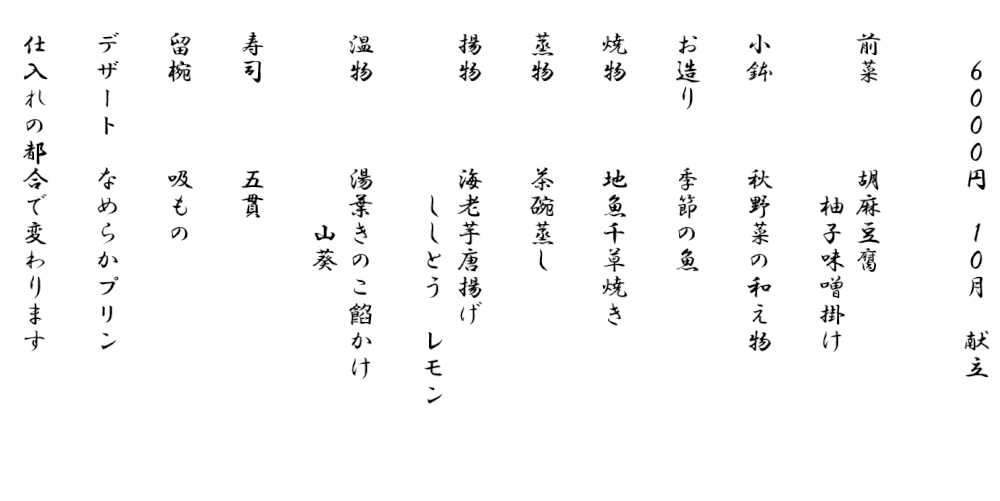 6000円　10月　献立
前菜　胡麻豆腐
柚子味噌掛け
小鉢　秋野菜の和え物
お造り　季節の魚
焼物　地魚千草焼き
蒸物　茶碗蒸し
揚物　海老芋唐揚げ
ししとう　レモン
温物　湯葉きのこ餡かけ
山葵
寿司　五貫
留椀　吸もの
デザート　なめらかプリン
仕入れの都合で変わります